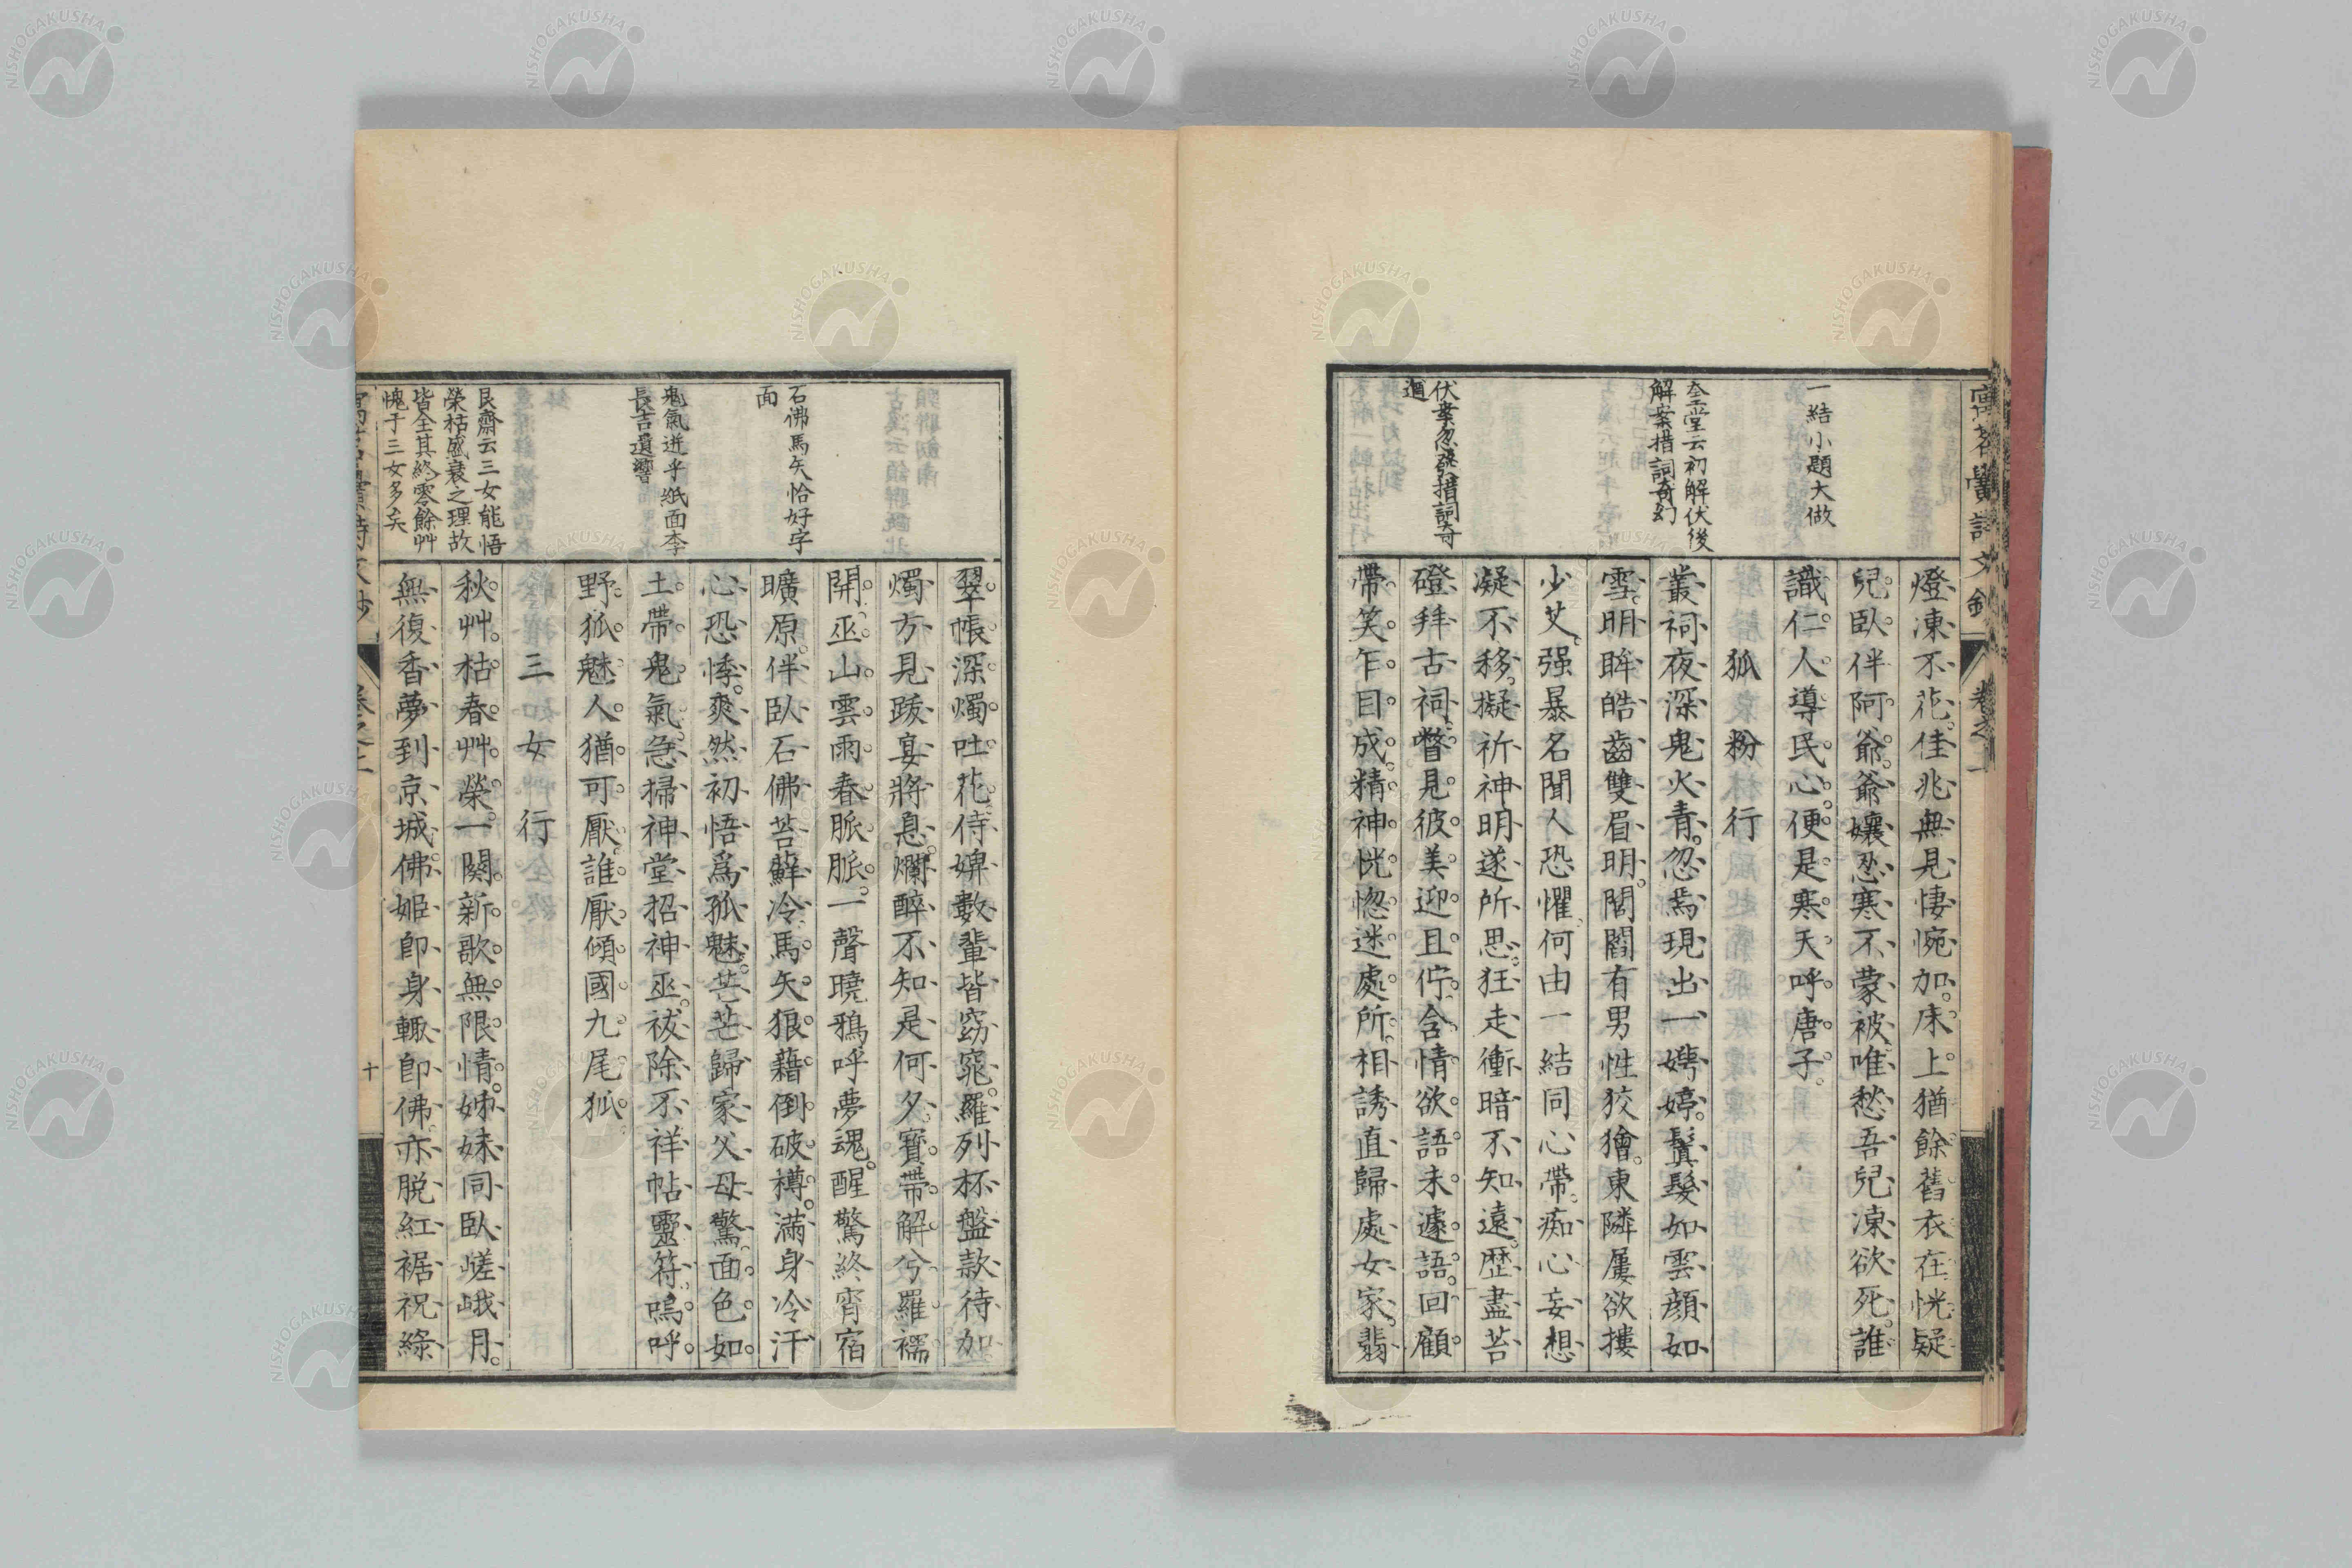 燈凍不花佳兆無見悽惋加床上猶餘舊衣在恍疑
兒臥伴阿爺爺孃忍寒不蒙被唯愁吾兒凍欲死誰
識仁人導民心便是寒天呼唐子
狐粉行
叢祠夜深鬼火青忽焉現出一娉婷鬒髮如雲顔如
雪明眸皓齒雙眉明閭閻有男性狡獪東隣屢欲摟
少艾强暴名聞人恐懼何由一結同心帶痴心妄想
凝不移擬祈神明遂所思狂走衝暗不知遠歴盡苔
磴拜古祠瞥見彼美迎且佇含情欲語未遽語回顧
帶笑乍目成精神恍惚迷處所相誘直歸處女家翡
一結小題大做
奎堂云初解伏後
解案措詞奇幻
伏案忽發措詞奇
翠帳深燭吐花侍婢數輩皆窈窕羅列杯盤款待加
燭方見跋宴將息爛醉不知是何夕寳帶解兮羅襦
開巫山雲雨春脈脈一聲曉鴉呼夢魂醒驚終宵宿
曠原伴臥石佛苔蘚冷馬矢狼藉倒破樽滿身冷汗
心恐悸爽然初悟爲狐魅芒芒歸家父母驚面色如
土帶鬼氣急掃神堂招神巫祓除不祥帖靈符嗚呼
野狐魅人猶可厭誰厭傾國九尾狐
三女行
秋艸枯春艸榮一闋新歌無限情姊妹同臥嵯峨月
無復香夢到京城佛姬卽身輙卽佛亦脱紅裾祝綠
石佛馬矢恰好字
面
鬼氣迸乎紙面李
長吉遺響
艮齋云三女能悟
榮枯盛衰之理故
皆全其終零餘艸
愧于三女多矣
十